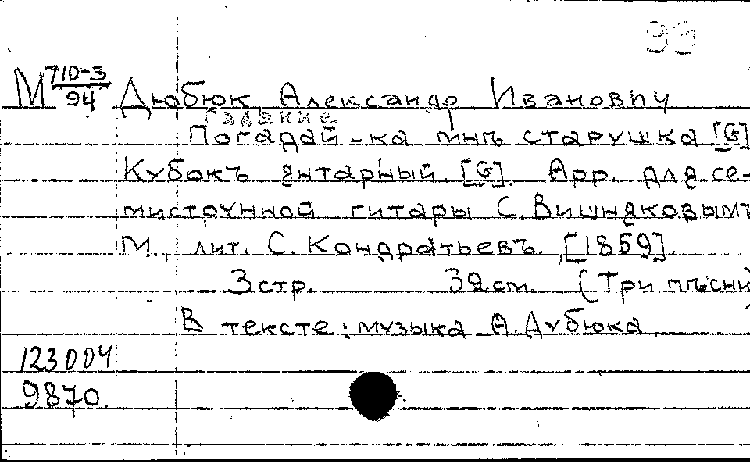 93
М 710-3/94 Дюбюк Александр Иванович
Гадание
Погадай-ка мнѣ старушка [G]
Кубокъ янтарный [G]. Арр. для се-
миструнной гитары С. Вишняковымъ
М., лит. С. Кондратьевъ. [1859].
3 стр. 32 см. (Три пѣсни
В тексте: музыка А. Дубюка
123004
9870.